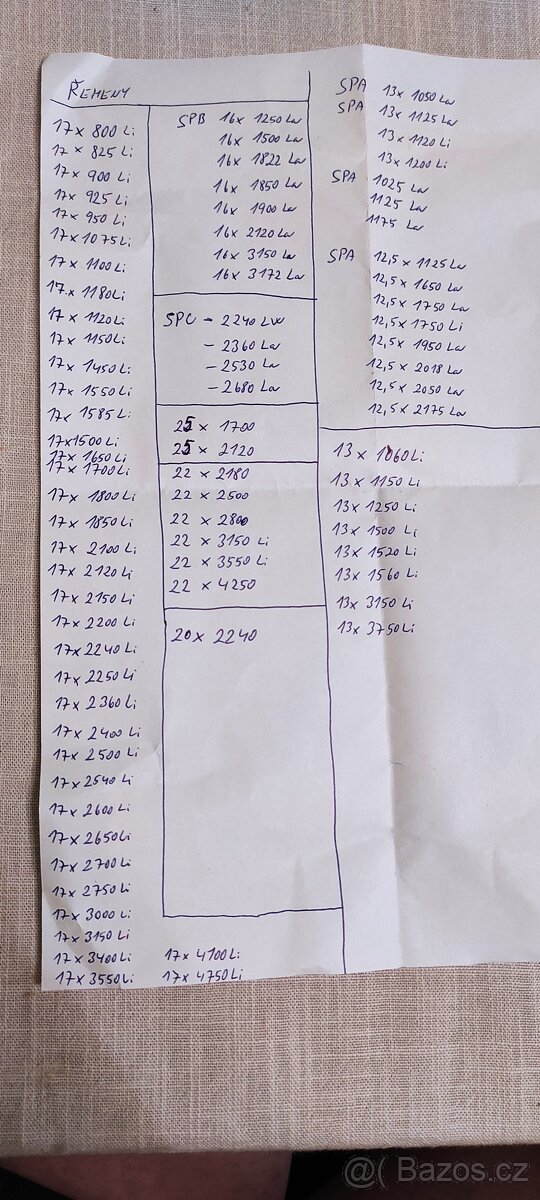 ŘEMENY
17 x 800 Li
17 x 825 Li
17 x 900 Li
17x 925 Li
17x 950 Li
17x 1075Li
17x 1100Li
17.x 1180Li
17 x 1120Li
17x 1150Li
17x 1450Li
17x 1550Li
17x 1585 Li
17x1500 Li
17x 1650Li
17x 1700Li
17x 1800Li
17x 1850Li
17x 2100Li
17x 2120Li
17x 2150Li
17x 2200Li
17x2240Li
17x 2250Li
17x 2360Li
17x 2400Li
17x 2500Li
17x 2540Li
17x 2600Li
17x 2650Li
17x 2700Li
17x 2750Li
17x 3000Li
17x 3150Li
17x 3400Li
17x 3550Li
17x 4100Li
17x 4750Li
SPB 16x 1250Lw
16x 1500Lw
16x 1822Lw
16x 1850Lw
16x 1900Lw
16x 2120Lw
16x 3150Lw
16x 3172Lw
SPC - 2240 LW
- 2360Lw
- 2530Lw
- 2680Lw
25 x 1700
25 x 2120
22 x 2180
22 x 2500
22 x 2800
22 x 3150 Li
22 x 3550 Li
22 x 4250
20 x 2240
SPA 13x 1050Lw
SPA 13x 1125Lw
13x 1120Li
13x 1200Li
SPA 1025 Lw
1125 Lw
1175 Lw
SPA 12,5x 1125Lw
12,5x 1650Lw
12,5x 1750Lw
12,5x 1750Li
12,5x 1950Lw
12,5x 2018Lw
12,5x 2050Lw
12,5x 2175Lw
13 x 1060Li
13 x 1150Li
13x 1250Li
13x 1500Li
13x 1520Li
13x 1560Li
13x 3150Li
13x 3750Li
@( Bazos.cz